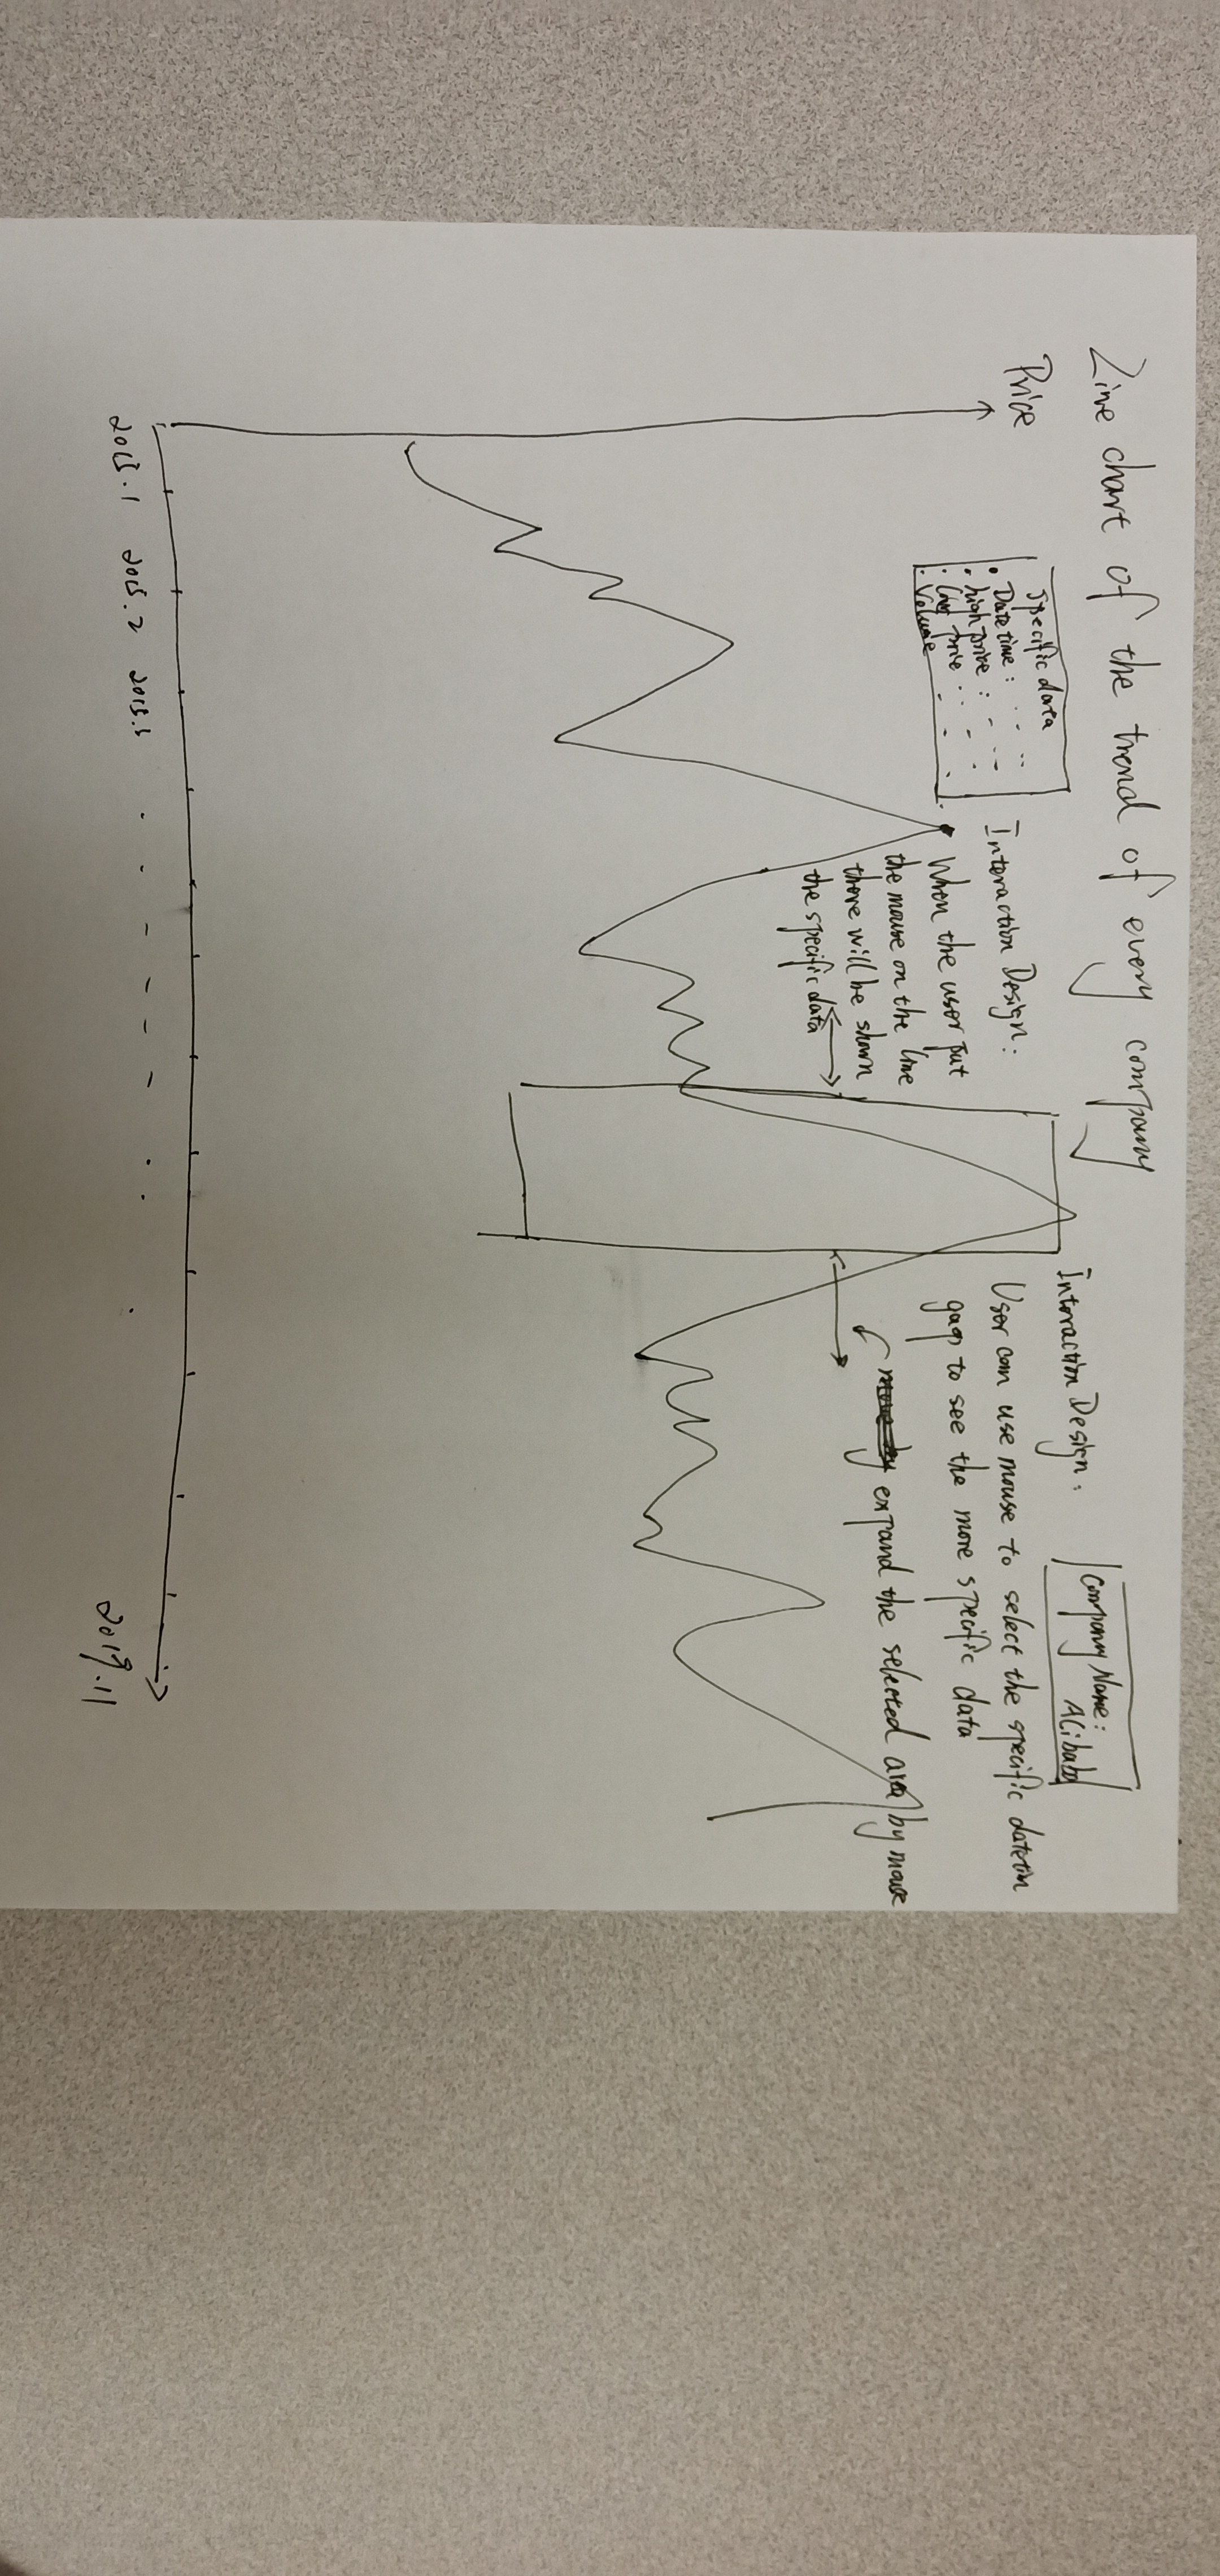 Line chart of the trend of every company
Price
Specific data
• Date time :
• high price :
• Low price
• Volume
Interaction Design :
When the user put
the mouse on the line
there will be shown
the specific data
Interaction Design :
User can use mouse to select the specific datetim
gap to see the more specific data
expand the selected area by mouse
Company Name :
Alibaba
2015.1 2015.2 2015.3
2019.11